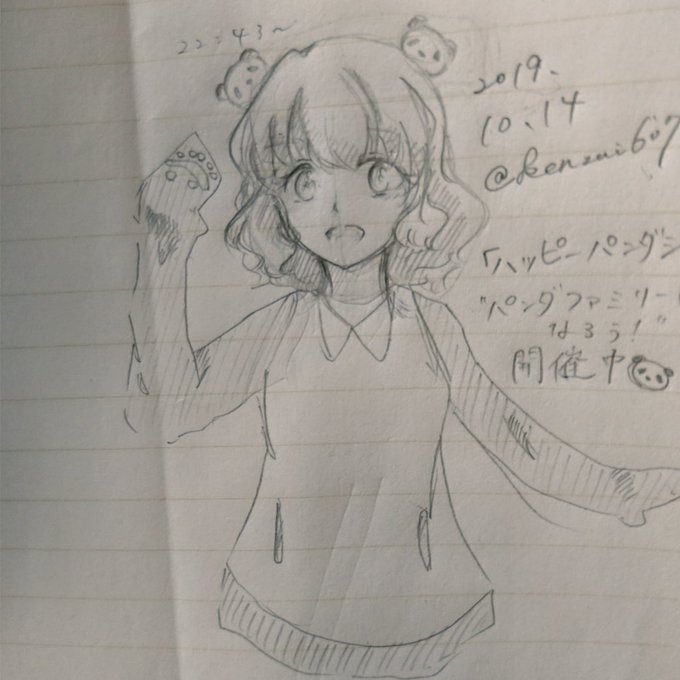 22:43〜
2019.
10.14
@kenzai607
「ハッピーパンダシ
"パンダファミリー
なろう!"
開催中